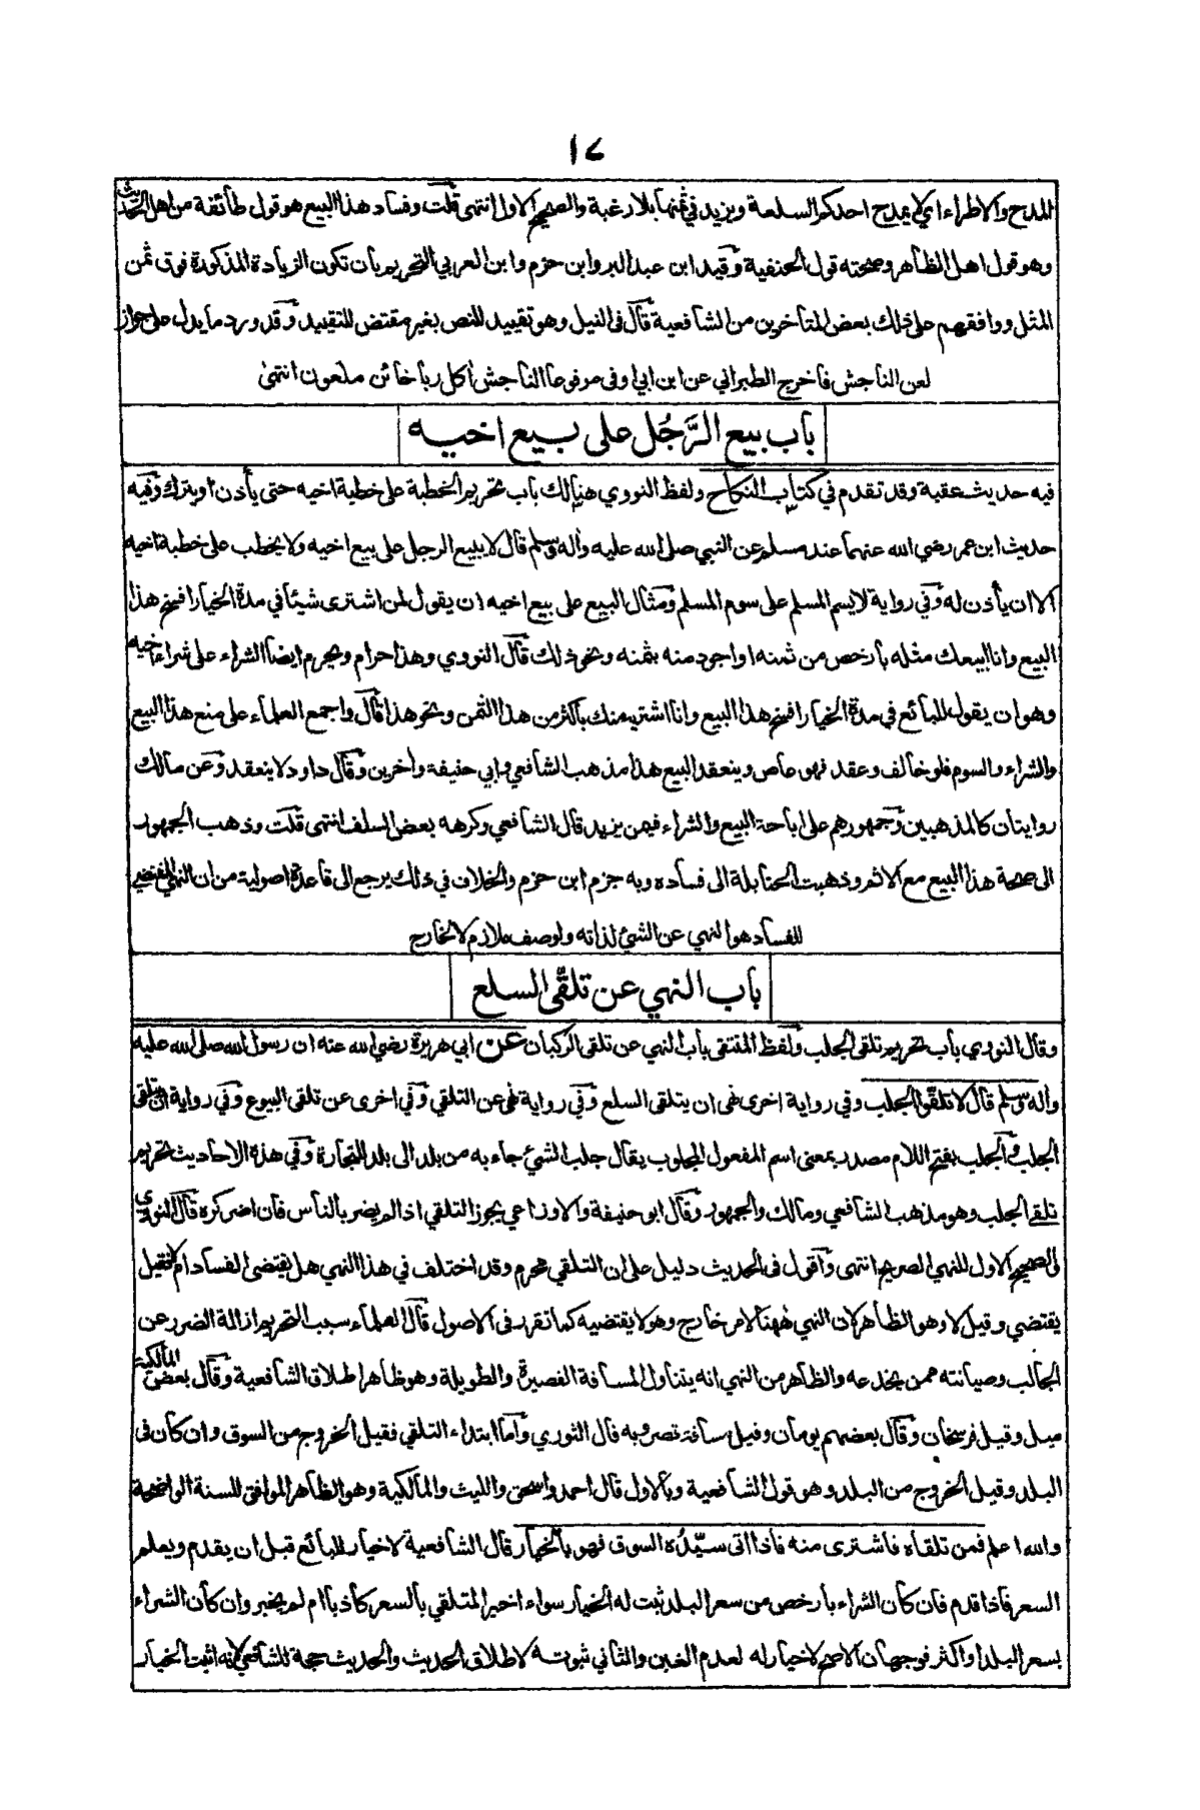 ١٧
المدح والاطراء اي لا يمدح احدكم السلعة ويزيد في ثمنها بلا رغبة والصحيح الاول انتهى قلت وفساد هذا البيع هو قول طائفة من اهل الحديث
وهو قول اهل الظاهر وصحته قول الحنفية وقيد ابن عبد البر وابن حزم وابن العربي التحريم بان تكون الزيادة المذكورة فوق ثمن
المثل ووافقهم على ذلك بعض المتأخرين من الشافعية قال في النيل وهو تقييد للنص بغير مقتض للتقييد وقد ورد ما يدل على جواز
لعن الناجش فاخرج الطبراني عن ابن ابي اوفى مرفوعا الناجش اكل ربا خائن ملعون انتهى
باب بيع الرَّجُل على بيع اخيه
فيه حديث عقبة وقد تقدم في كتاب النكاح ولفظ النووي هنالك باب تحريم الخطبة على خطبة اخيه حتى يأذن او يترك وفيه
حديث ابن عمر رضي الله عنهما عند مسلم عن النبي صلى الله عليه واله وسلم قال لا يبيع الرجل على بيع اخيه ولا يخطب على خطبة اخيه
الا ان يأذن له وفي رواية لا يسم المسلم على سوم المسلم ومثال البيع على بيع اخيه ان يقول لمن اشترى شيئا في مدة الخيار افسخ هذا
البيع وانا ابيعك مثله بارخص من ثمنه او اجود منه بثمنه ونحو ذلك قال النووي وهذا حرام ويحرم ايضا الشراء على شراء اخيه
وهو ان يقول للبائع في مدة الخيار افسخ هذا البيع وانا اشتريه منك باكثر من هذا الثمن ونحو هذا قال واجمع العلماء على منع هذا البيع
والشراء والسوم فلو خالف وعقد فهو عاص وينعقد البيع هذا مذهب الشافعي وابي حنيفة واخرين وقال داود لا ينعقد وعن مالك
روايتان كالمذهبين وجمهورهم على اباحة البيع والشراء فيمن يزيد قال الشافعي وكرهه بعض السلف انتهى قلت وذهب الجمهور
الى صحة هذا البيع مع الاثم وذهبت الحنابلة الى فساده وبه جزم ابن حزم والخلاف في ذلك يرجع الى قاعدة اصولية من ان النهي المقتضي
للفساد هو النهي عن الشيئ لذاته ولوصف ملازم لا لخارج
باب النهي عن تلقّي السلع
وقال النووي باب تحريم تلقي الجلب ولفظ المنتقى باب النهي عن تلقي الركبان عن ابي هريرة رضي الله عنه ان رسول الله صلى الله عليه
واله وسلم قال لا تلقّوا الجلب وفي رواية اخرى نهى ان يتلقى السلع وفي رواية نهى عن التلقي وفي اخرى عن تلقي البيوع وفي رواية ان يتلقى
الجلب والجلب بفتح اللام مصدر بمعنى اسم المفعول المجلوب يقال جلب الشيئ جاء به من بلد الى بلد للتجارة وفي هذه الاحاديث تحريم
تلقي الجلب وهو مذهب الشافعي ومالك والجمهور وقال ابو حنيفة والاوزاعي يجوز التلقي اذا لم يضر بالناس فان اضر كره قال النووي
الصحيح الاول للنهي الصريح انتهى واقول في الحديث دليل على ان التلقي محرم وقد اختلف في هذا النهي هل يقتضى الفساد ام لا فقيل
يقتضي وقيل لا وهو الظاهر لان النهي ههنا لامر خارج وهو لا يقتضيه كما تقرر في الاصول قال العلماء سبب التحريم ازالة الضرر عن
الجالب وصيانته ممن يخدعه والظاهر من النهي انه يتناول المسافة القصيرة والطويلة وهو ظاهر اطلاق الشافعية وقال بعض المالكية
ميل وقيل فرسخان وقال بعضهم يومان وقيل مسافة قصر وبه قال الثوري واما ابتداء التلقي فقيل الخروج من السوق وان كان في
البلد وقيل الخروج من البلد وهو قول الشافعية وبالاول قال احمد واسحق والليث والمالكية وهو الظاهر الموافق للسنة الواضحة
والله اعلم فمن تلقاه فاشترى منه فاذا اتى سيّدُه السوق فهو بالخيار قال الشافعية لا خيار للبائع قبل ان يقدم ويعلم
السعر فاذا قدم فان كان الشراء بارخص من سعر البلد ثبت له الخيار سواء اخبر المتلقي بالسعر كاذبا ام لم يخبر وان كان الشراء
بسعر البلد او اكثر فوجهان الاصح لا خيار له لعدم الغبن والثاني ثبوته لاطلاق الحديث والحديث حجة للشافعي لانه اثبت الخيار